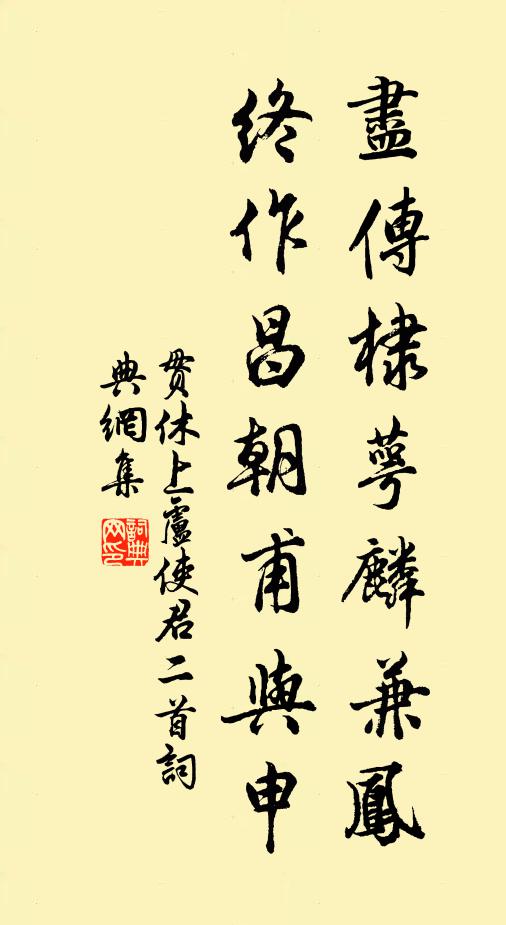 盡傳棣萼麟兼鳳
終作昌朝甫與申
貫休上盧使君二首詞
典網集
詞典網印